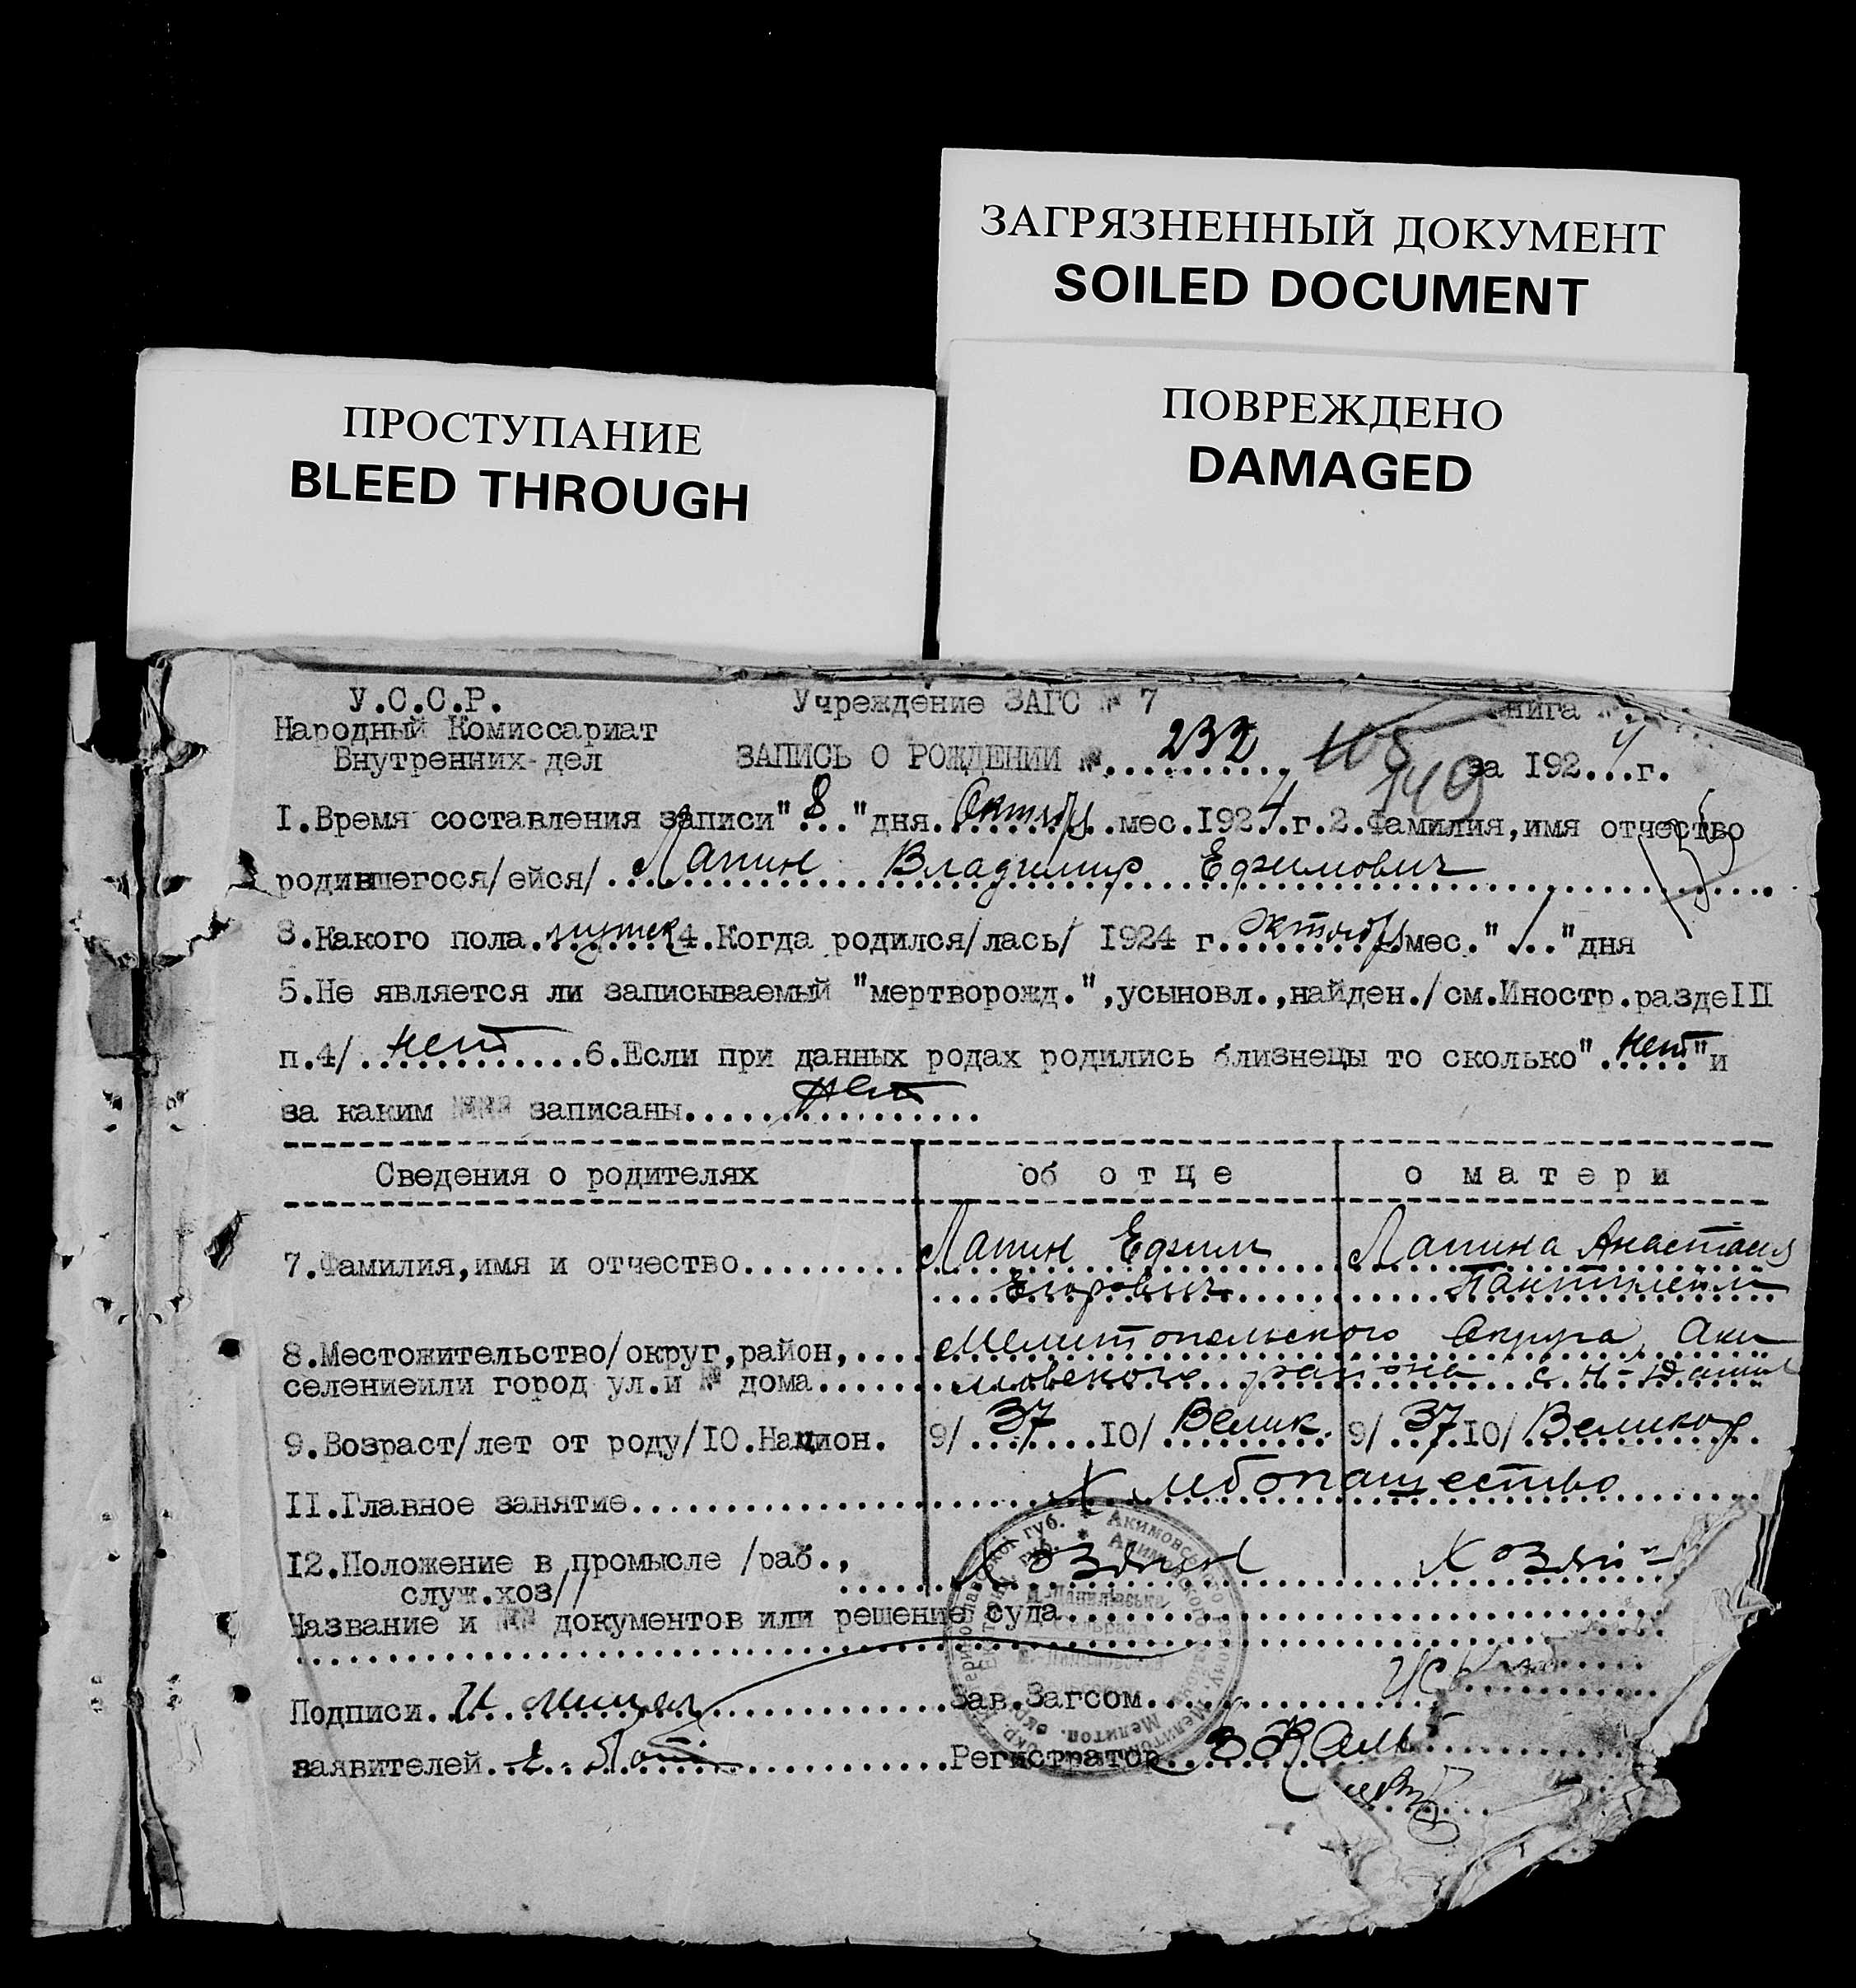 ЗАГРЯЗНЕННЫЙ ДОКУМЕНТ
SOILED DOCUMENT
ПРОСТУПАНИЕ
BLEED THROUGH
ПОВРЕЖДЕНО
DAMAGED
У.С.С.Р. Учреждение ЗАГС № 7 книга №
Народный Комиссариат
Внутренних-дел ЗАПИСЬ О РОЖДЕНИИ №. 232 105 149 за 192 4 г.
I.Время составления записи" 8 "дня. Октябр .мес.192 4 .г.2.Фамилия,имя отчество
родившегося/ейся/ Лапин Владимир Ефимович
3.Какого пола. мужск 4.Когда родился/лась/ 1924 г. октябр мес." 1 "дня
5.Не является ли записываемый "мертворожд.",усыновл.,найден./см.Иностр.раздеIII
п.4/. нет 6.Если при данных родах родились близнецы то сколько" нет "и
за каким №№ записаны. нет
Сведения о родителях об отце о матери
7.Фамилия,имя и отчество. Лапин Ефим Лапина Анастасия
Егорович Пантилейм
8.Местожительство/округ,район, Мелитопольского Округа, Аки
селениеили город ул.и № дома. мовского района с. Н-Данил
9.Возраст/лет от роду/10.Национ. 9/ 37 10/ Велик. 9/ 37 10/ Великор
II.Главное занятие. Хлибопашество
12.Положение в промысле /раб., Хозяин Хозяй
служ.хоз//
Название и №№ документов или решение суда.
Подписи. Зав.Загсом.
заявителей. Регистратор.